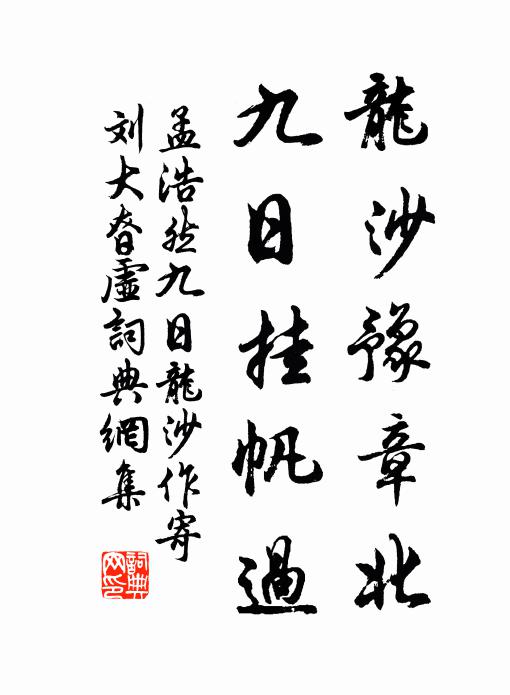 龍沙豫章北
九日挂帆過
孟浩然九日龍沙作寄
刘大眘虛詞典網集
詞典网印